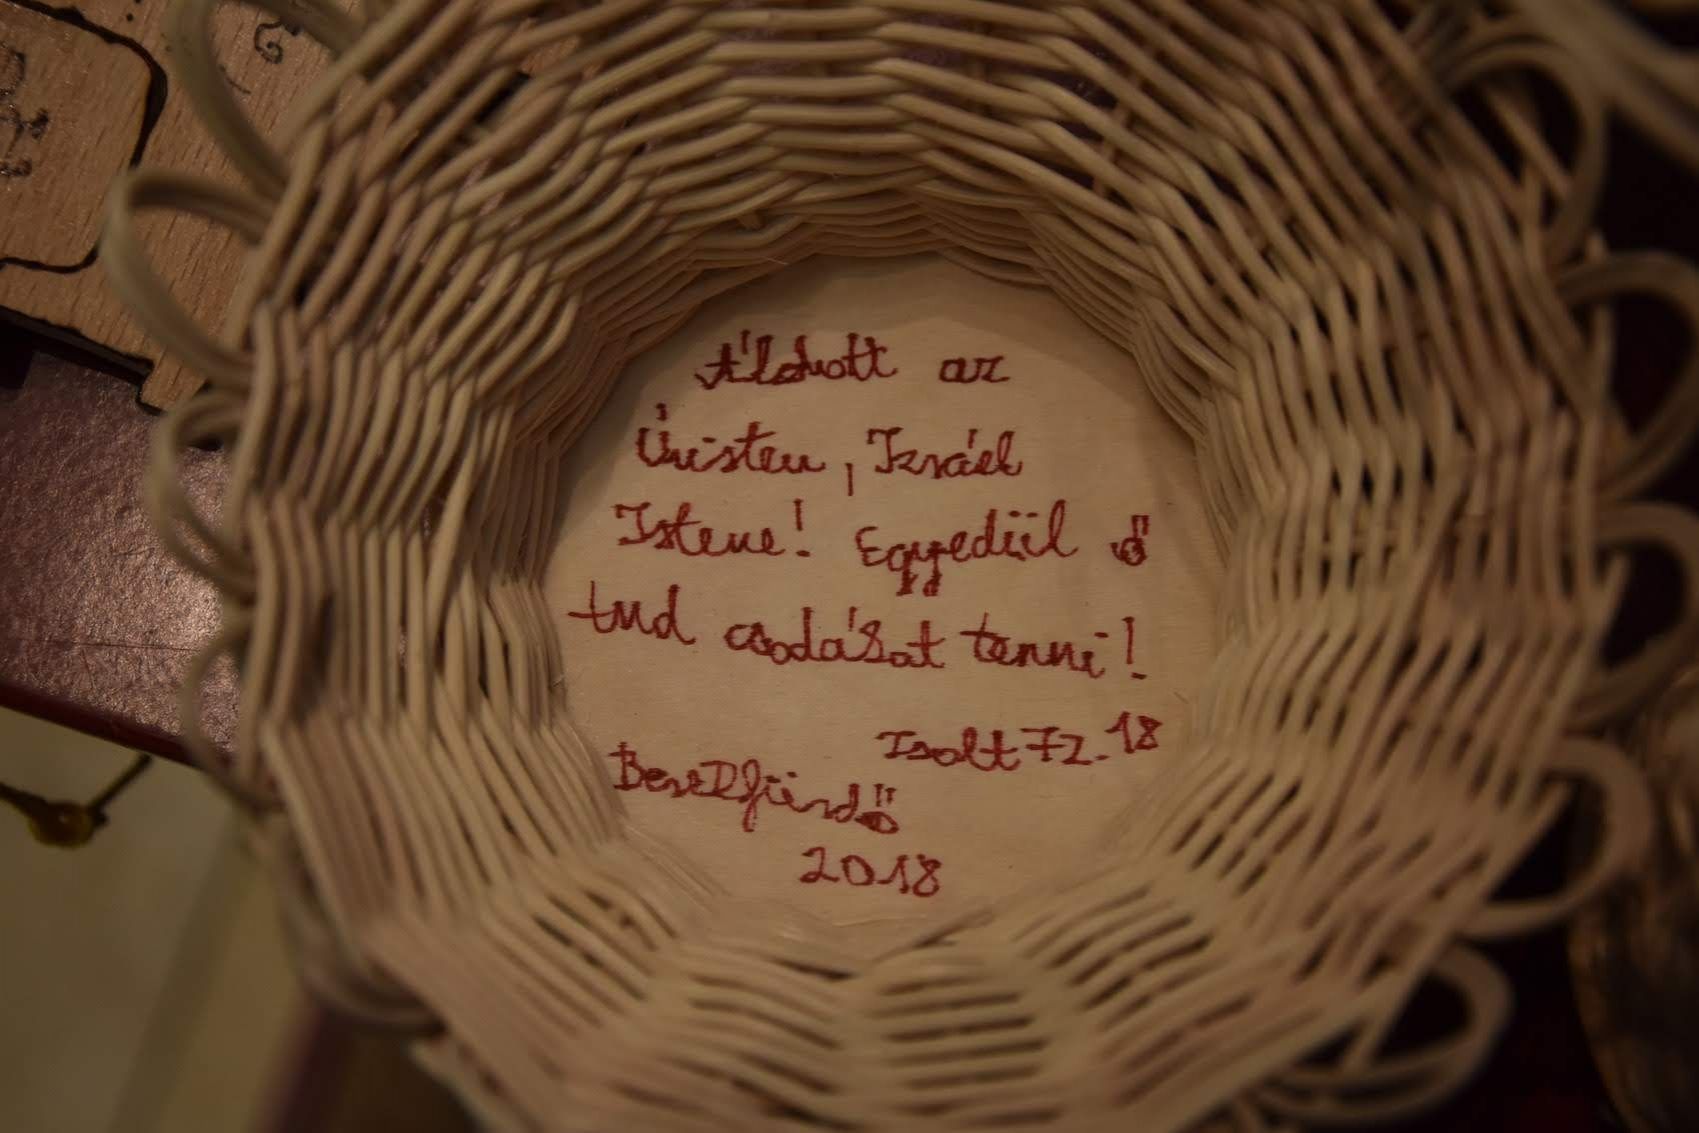 Áldott az
Úristen, Izráel
Istene! Egyedül ő
tud csodákat tenni!
Zsolt 72.18
Berekfürdő
2018